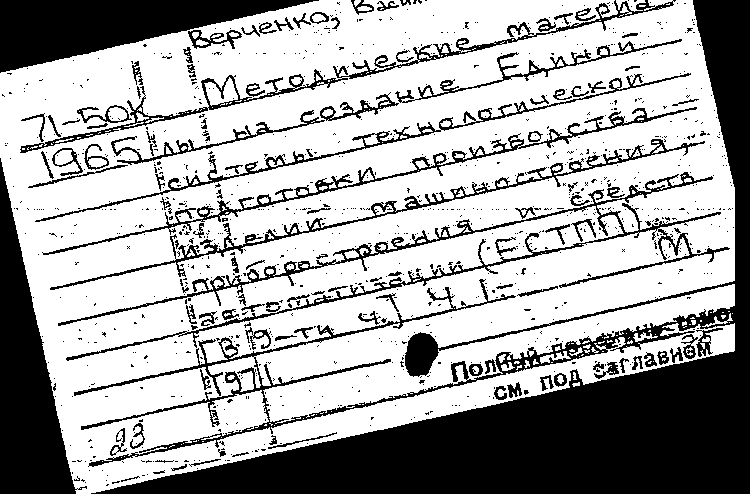 Верченко,
71-50К Методические материа
1965 лы на создание Единой
системы технологической
подготовки производства
изделий машиностроения,
приборостроения и средств
автоматизации (ЕСТПП).
[В 9-ти ч.] Ч. 1- М.,
1971.
Полный перечень томов
см. под заглавием
23